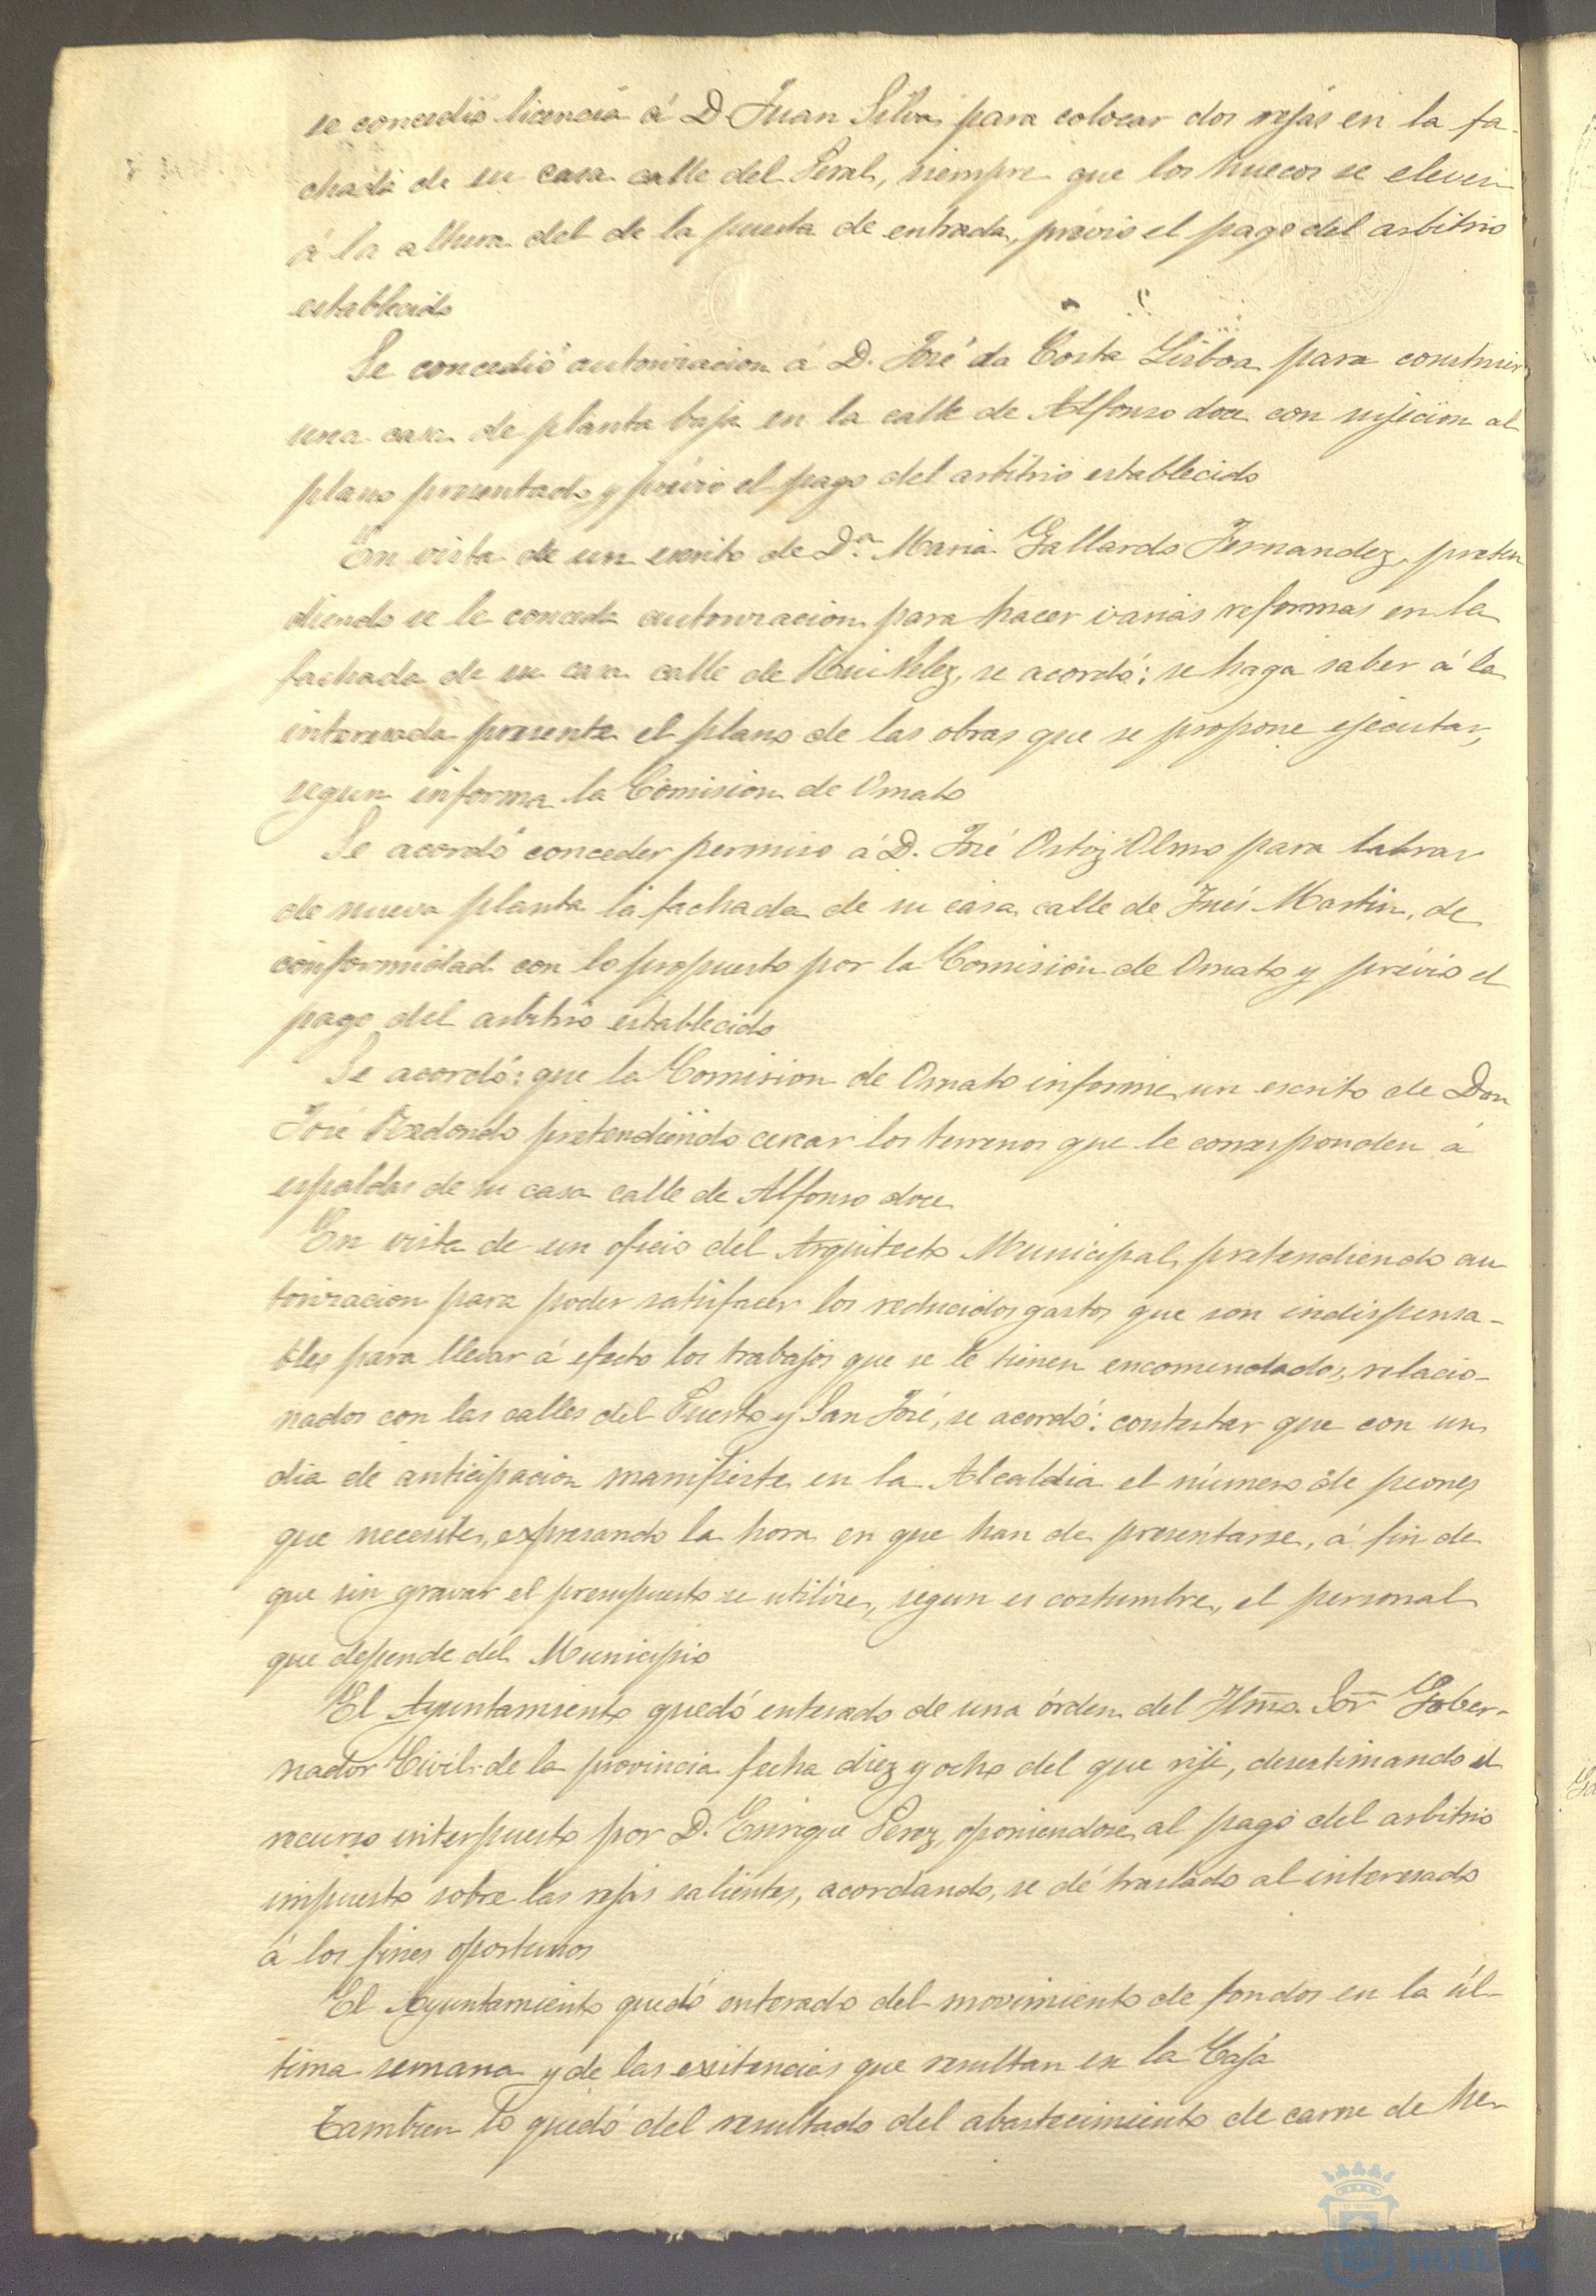 se concedió licencia á D. Juan Silva para colocar dos rejas en la fa-
chada de su casa calle del Peral, siempre que los huecos se eleven
á la altura del de la puerta de entrada, prévio el pago del arbitrio
establecido
Se concedió autorizacion á D. José da Costa Lisboa para construir
una casa de planta baja en la calle de Alfonso doce con sujecion al
plano presentado y prévio el pago del arbitrio establecido
En vista de un escrito de D.ª Maria Gallardo Fernandez, preten
diendo se le conceda autorizacion para hacer varias reformas en la
fachada de su casa calle de Rui Velez, se acordó: se haga saber á la
interesada presente el plano de las obras que se propone ejecutar,
segun informa la Comision de Ornato
Se acordó conceder permiso á D. José Ortiz Olmo para labrar
de nueva planta la fachada de su casa calle de Inés Martin, de
conformidad con lo propuesto por la Comision de Ornato y prévio el
pago del arbitrio establecido
Se acordó: que la Comision de Ornato informe un escrito de Don
José Redondo pretendiendo cercar los terrenos que le corresponden á
espaldas de su casa calle de Alfonso doce
En vista de un oficio del Arquitecto Municipal, pretendiendo au
torizacion para poder satisfacer los reducidos gastos que son indispensa-
bles para llevar á efecto los trabajos que se le tienen encomendados, relacio-
nados con las calles del Puerto y San José, se acordó: contestar que con un
dia de anticipacion manifieste en la Alcaldia el número de peones
que necesite, expresando la hora en que han de presentarse, á fin de
que sin gravar el presupuesto se utilize, segun es costumbre, el personal
que depende del Municipio
El Ayuntamiento quedó enterado de una órden del Ilmo. Sor Gober-
nador Civil de la provincia fecha diez y ocho del que rije, desestimando el
recurso interpuesto por D. Enrique Perez, oponiendose al pago del arbitrio
impuesto sobre las rejas salientes, acordando, se dé traslado al interesado
á los fines oportunos
El Ayuntamiento quedó enterado del movimiento de fondos en la úl-
tima semana y de las existencias que resultan en la Caja
Tambien lo quedó del resultado del abastecimiento de carne de he-
HUELVA